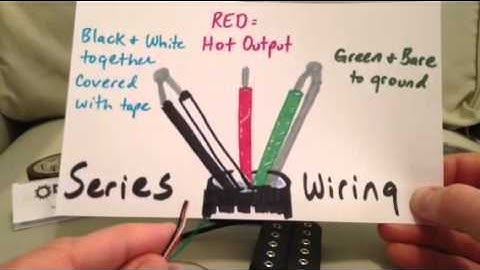 Black + White
together
Covered
with tape
RED =
Hot Output
Green + Bare
to ground
Series
Wiring